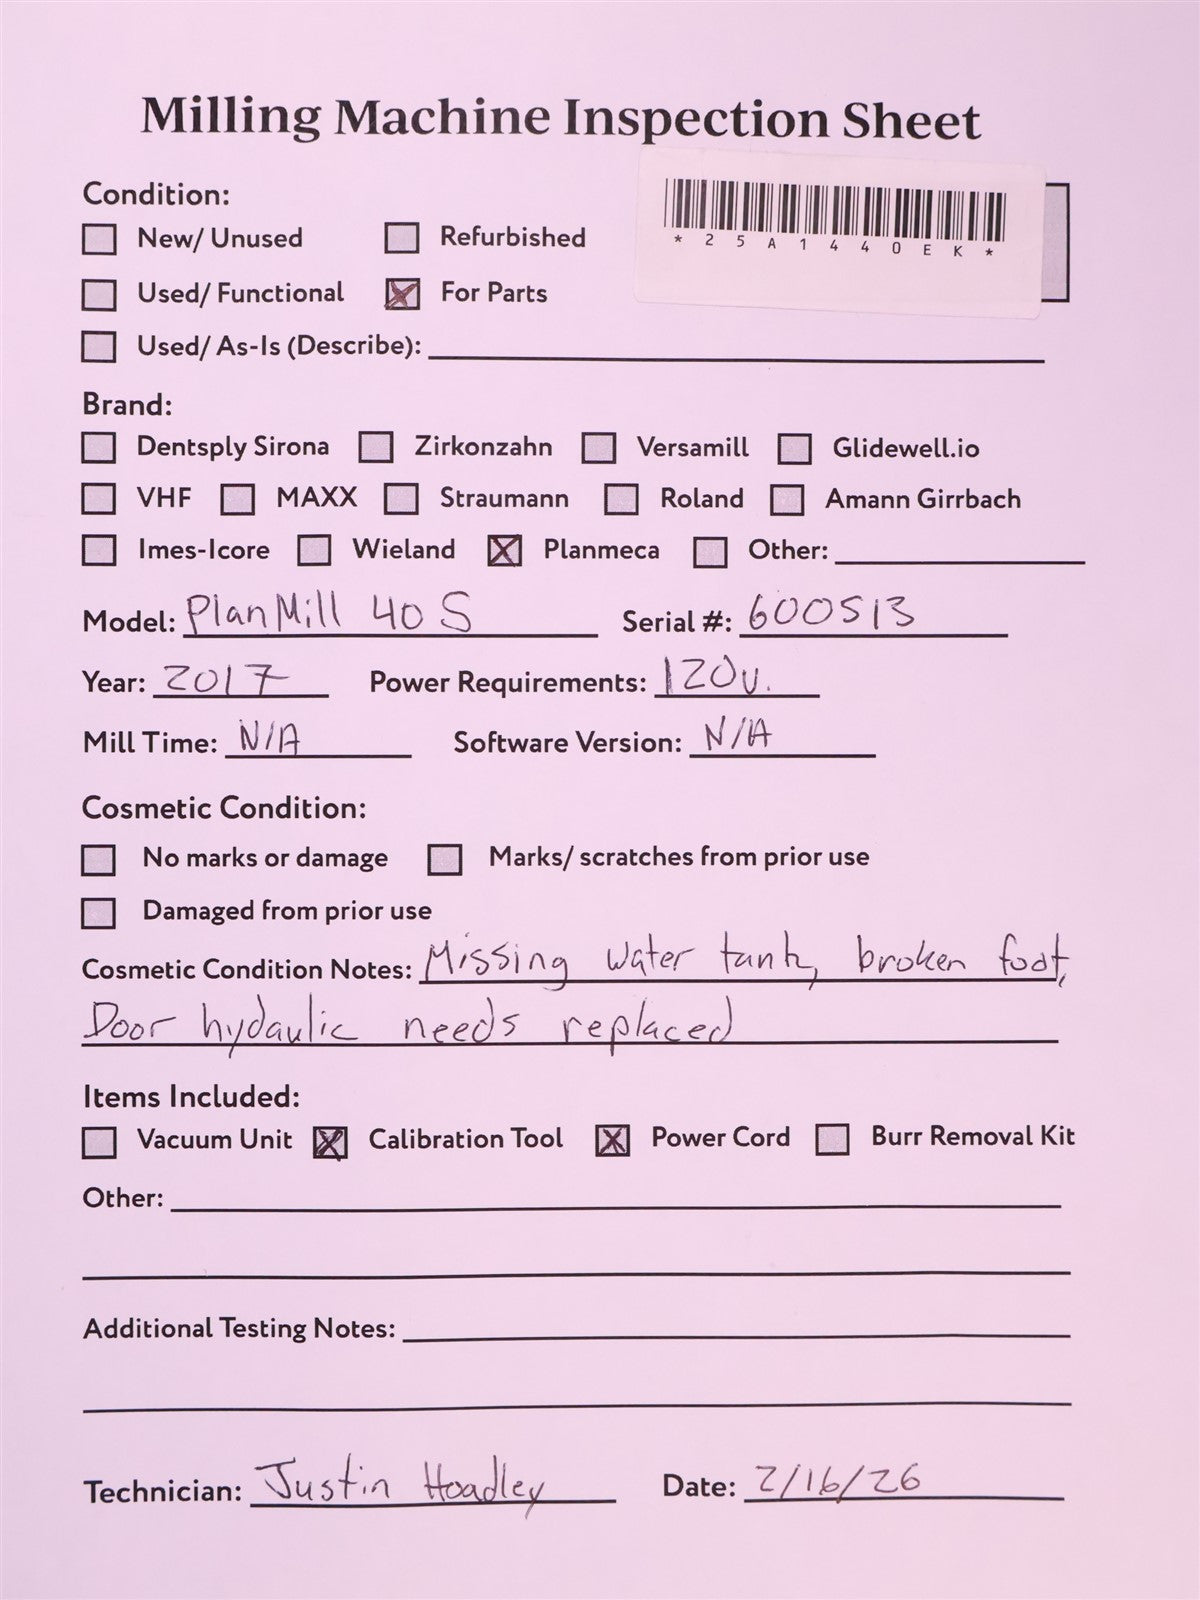 Milling Machine Inspection Sheet
Condition:
*25A1440EK*
New/ Unused Refurbished
Used/ Functional For Parts
Used/ As-Is (Describe):
Brand:
Dentsply Sirona Zirkonzahn Versamill Glidewell.io
VHF MAXX Straumann Roland Amann Girrbach
Imes-Icore Wieland Planmeca Other:
Model: PlanMill 40 S Serial #: 600513
Year: 2017 Power Requirements: 120v.
Mill Time: N/A Software Version: N/A
Cosmetic Condition:
No marks or damage Marks/ scratches from prior use
Damaged from prior use
Cosmetic Condition Notes: Missing water tank, broken foot,
Door hydaulic needs replaced
Items Included:
Vacuum Unit Calibration Tool Power Cord Burr Removal Kit
Other:
Additional Testing Notes:
Technician: Justin Hoadley Date: 2/16/26